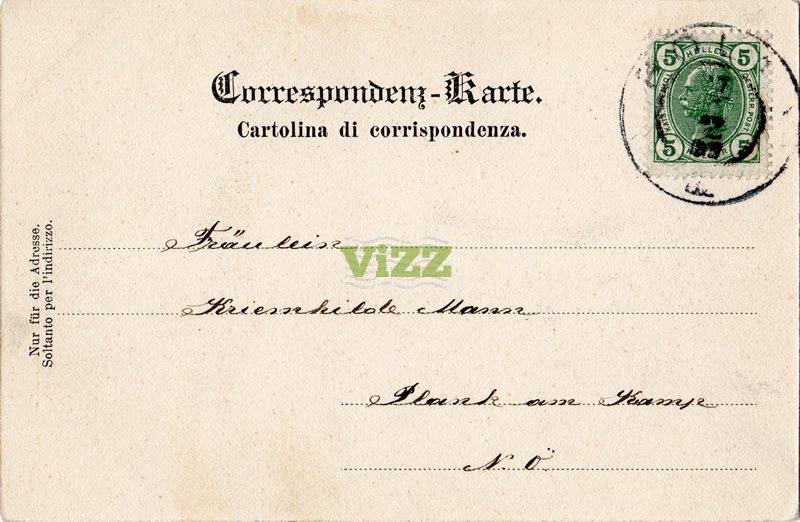 Correspondenz-Karte.
Cartolina di corrispondenza.
5 HELLER 5
5 5
Nur für die Adresse.
Soltanto per l'indirizzo.
Fräulein
ViZZ
Kriemhilde Mann
Plank am Kamp
N. Ö.